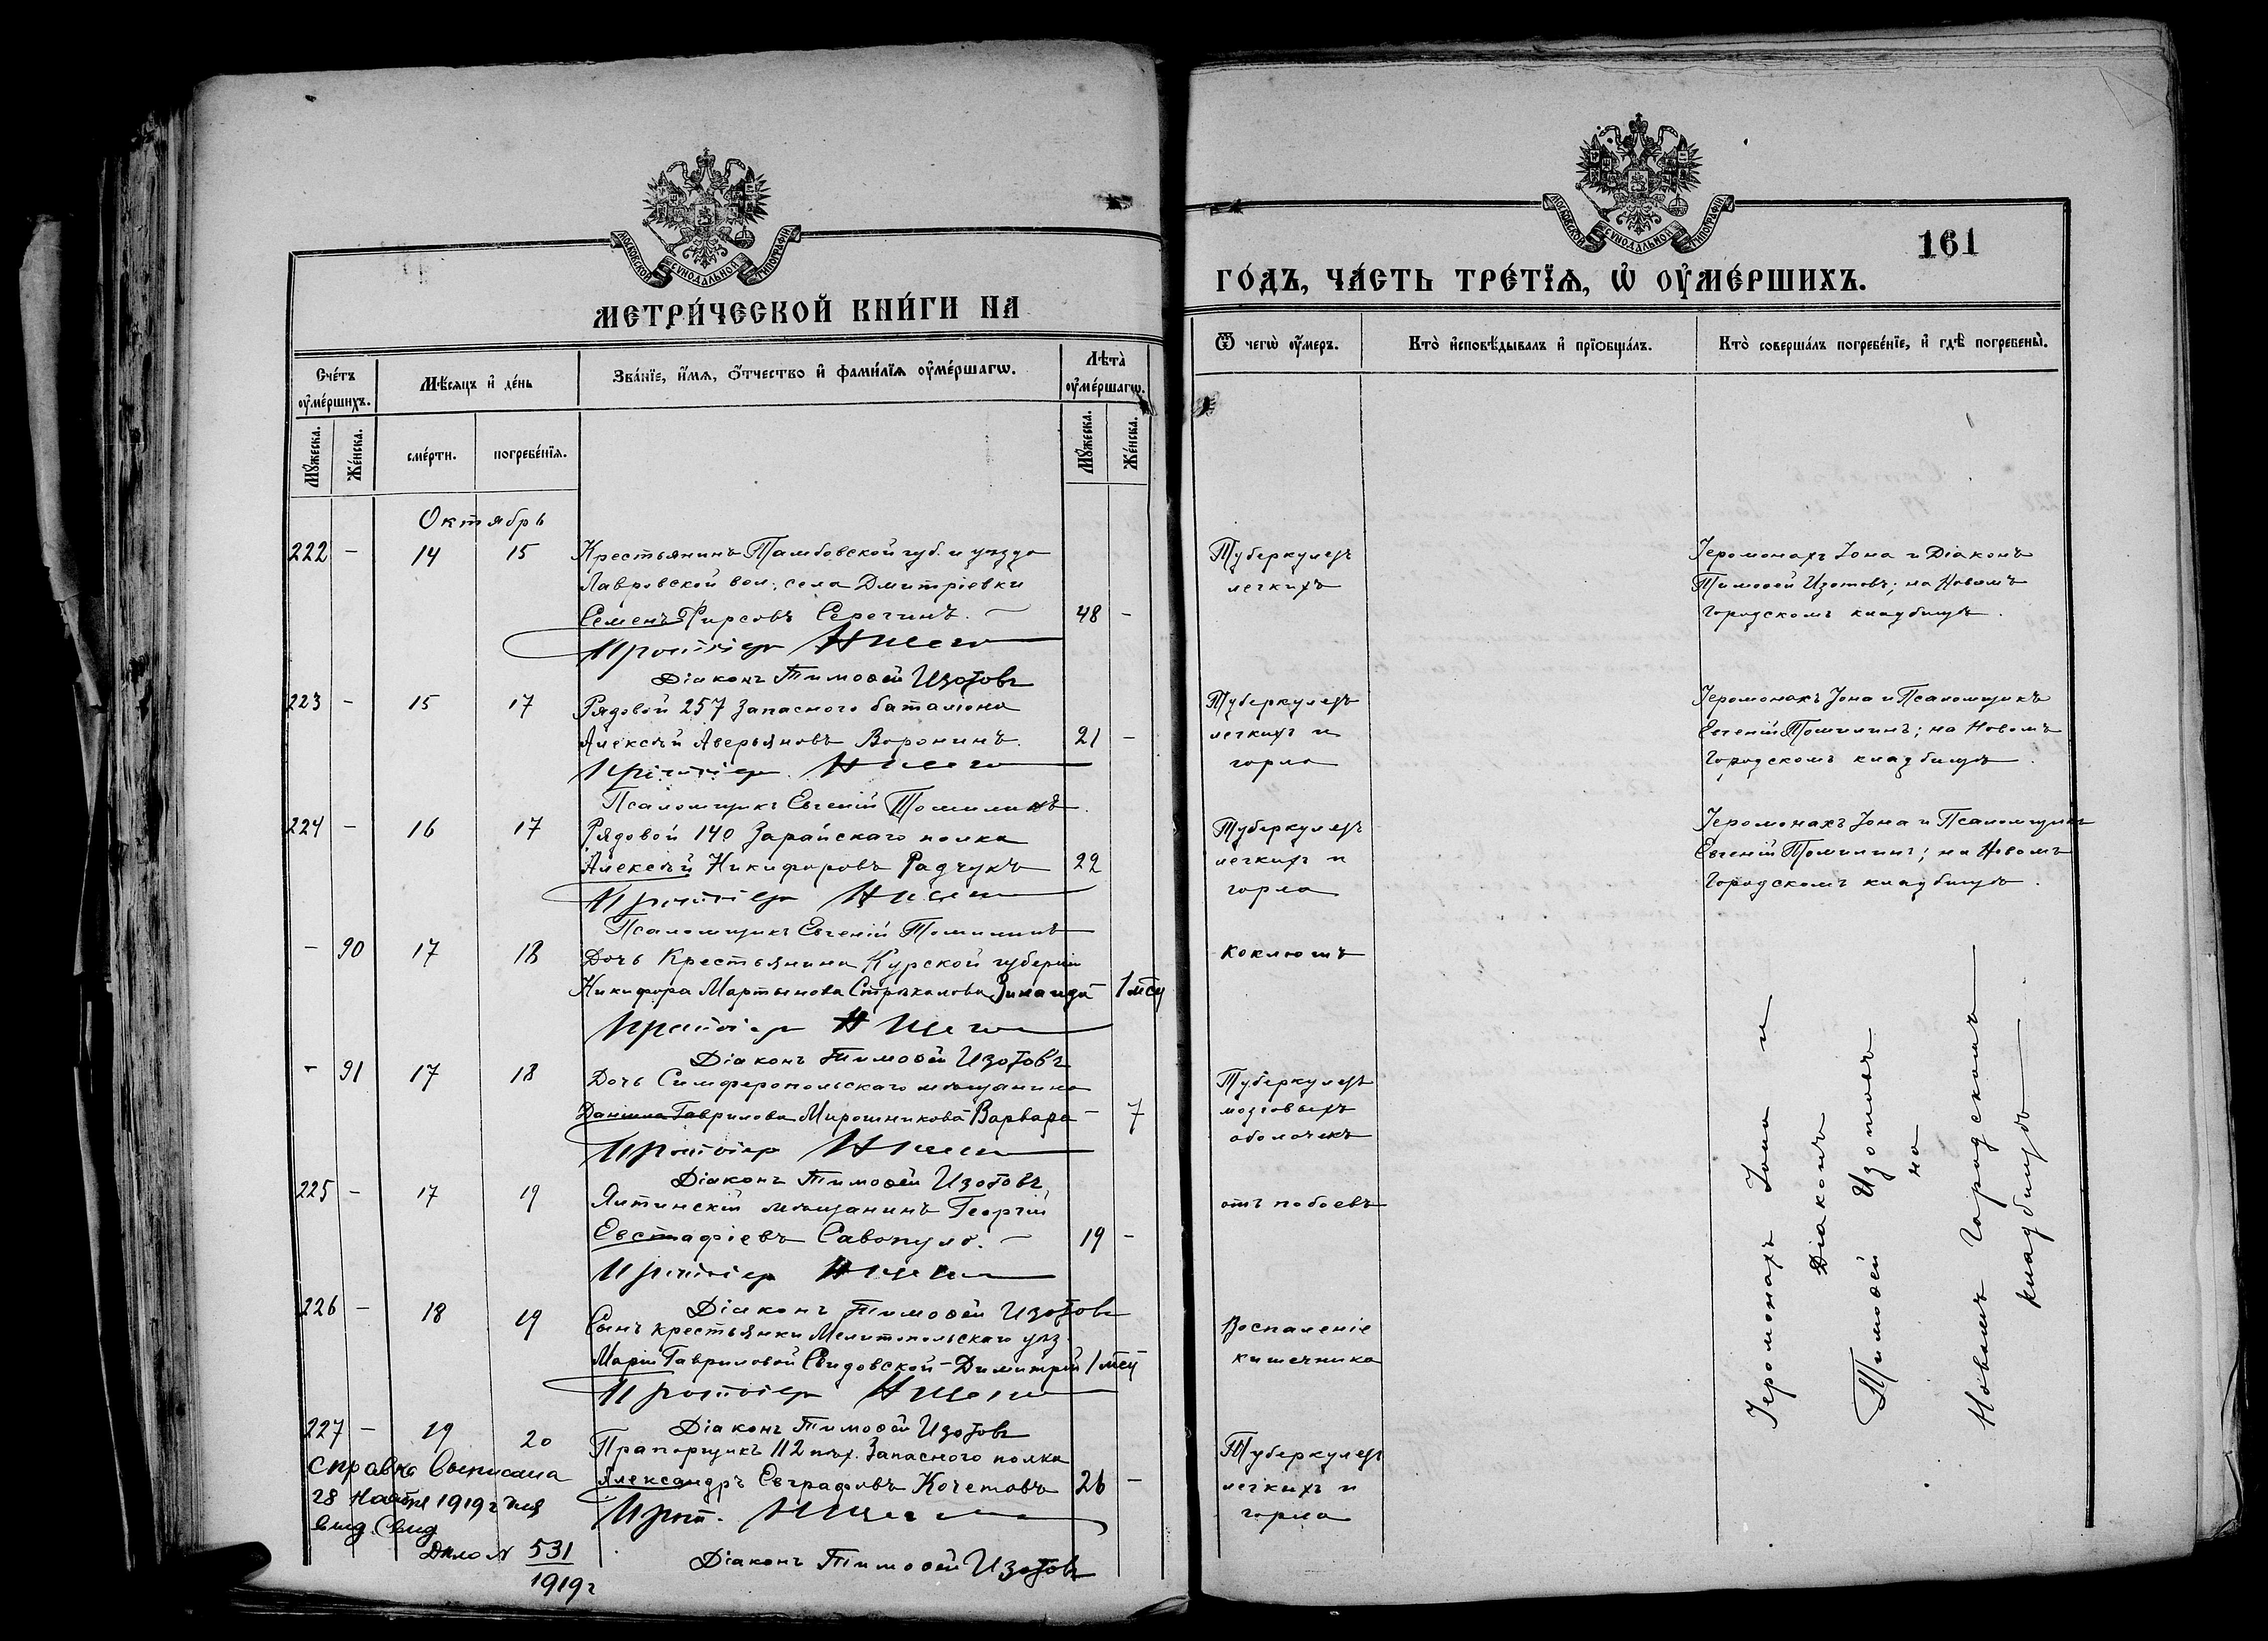 МОСКОВСКОЙ СѴНОДАЛЬНОЙ ТИПОГРАФІИ
МЕТРИ́ЧЕСКОЙ КНИ́ГИ НА
Сче́тъ ᲂу҆ме́ршихъ.
Мѣ́сяцъ и҆ де́нь
Зва́нїе, и҆́мя, ѻ҆́тчество и҆ фами́лїя ᲂу҆ме́ршагѡ.
Лѣта̀ ᲂу҆ме́ршагѡ.
Мꙋ́жеска.
Же́нска.
сме́рти.
погребе́нїя.
Мꙋ́жеска.
Же́нска.
Октябрь
222 - 14 15 Крестьянинъ Тамбовской губ. и уѣзда
Лавровской вол. села Дмитріевки
Семенъ Фирсовъ Серегинъ. 48 -
Протоіер
Діаконъ Тимоѳей Изотовъ
223 - 15 17 Рядовой 257 Запасного баталіона
Алексѣй Аверьяновъ Воронинъ. 21 -
Протоіер
Псаломщикъ Евгеній Томилинъ.
224 - 16 17 Рядовой 140 Зарайскаго полка
Алексѣй Никифоровъ Радчукъ 22
Протоіер
Псаломщикъ Евгеній Томилинъ
- 90 17 18 Дочь Крестьянина Курской губерніи
Никифора Мартынова Зинаида 1 мѣс
Протоіер
Діаконъ Тимоѳей Изотовъ
- 91 17 18 Дочь Симферопольскаго мѣщанина
Даніила Гаврилова Мирошникова - Варвара - 7
Протоіер
Діаконъ Тимоѳей Изотовъ
225 - 17 19 Ялтинскій мѣщанинъ Георгій
Евстафіевъ Савопуло. 19 -
Протоіер
Діаконъ Тимоѳей Изотовъ
226 - 18 19 Сынъ крестьянки Мелитопольскаго уѣз.
Маріи Гавриловой Свидовской - Димитрій 1 мѣс
Протоіер
Діаконъ Тимоѳей Изотовъ
227 - 19 20 Прапорщикъ 112 пѣх. Запасного полка
Александръ Евграфовъ Кочетовъ 26 -
Прот.
Діаконъ Тимоѳей Изотовъ
справка выписана
28 Ноября 1919 г
Дѣло № 531
1919 г
МОСКОВСКОЙ СѴНОДАЛЬНОЙ ТИПОГРАФІИ
161
ГО́ДЪ, ЧА́СТЬ ТРЕ́ТЇѦ, Ѡ҆ ОУ҆МЕ́РШИХЪ.
Ѿ чегѡ̀ ᲂу҆́меръ.
Кто̀ и҆сповѣ́дывалъ и҆ прїѻбща́лъ.
Кто̀ соверша́лъ погребе́нїе, и҆ гдѣ̀ погребены̀.
Туберкулезъ
легкихъ
Іеромонахъ Іона и Діаконъ
Тимоѳей Изотовъ; на Новомъ
Городскомъ кладбищѣ.
Туберкулезъ
легкихъ и
горла
Іеромонахъ Іона и Псаломщикъ
Евгеній Томилинъ; на Новомъ
Городскомъ кладбищѣ.
Туберкулезъ
легкихъ и
горла
Іеромонахъ Іона и Псаломщикъ
Евгеній Томилинъ; на Новомъ
Городскомъ кладбищѣ.
коклюшъ
Туберкулезъ
мозговыхъ
оболочекъ
отъ побоевъ
Воспаленіе
кишечника
Туберкулезъ
легкихъ и
горла
Іеромонахъ Іона и
Діаконъ
Тимоѳей Изотовъ
на
Новомъ Городскомъ
кладбищѣ